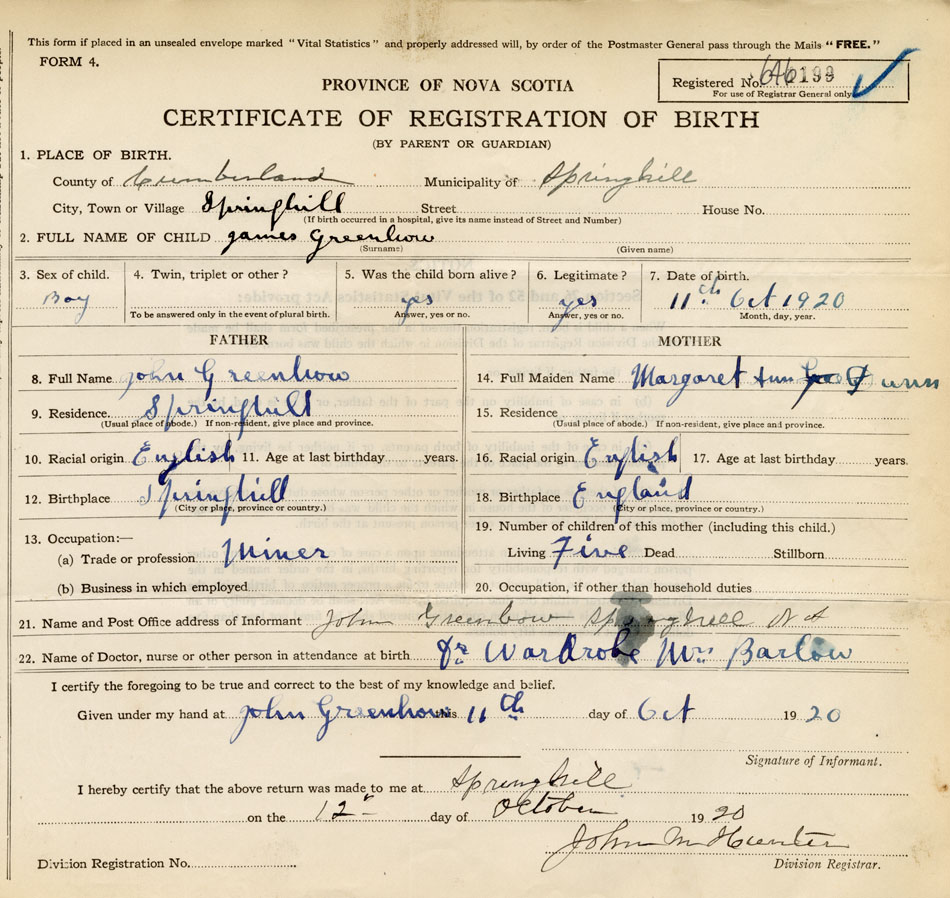 This form if placed in an unsealed envelope marked "Vital Statistics" and properly addressed will, by order of the Postmaster General pass through the Mails "FREE."
FORM 4.
PROVINCE OF NOVA SCOTIA
Registered No. 199
For use of Registrar General only
CERTIFICATE OF REGISTRATION OF BIRTH
(BY PARENT OR GUARDIAN)
1. PLACE OF BIRTH.
County of Cumberland Municipality of Springhill
City, Town or Village Springhill Street House No.
(If birth occurred in a hospital, give its name instead of Street and Number)
2. FULL NAME OF CHILD james Greenhow
(Surname) (Given name)
3. Sex of child. 4. Twin, triplet or other? 5. Was the child born alive? 6. Legitimate? 7. Date of birth.
Boy yes yes 11th Oct 1920
To be answered only in the event of plural birth. Answer, yes or no. Answer, yes or no. Month, day, year.
FATHER MOTHER
8. Full Name john Greenhow 14. Full Maiden Name Margaret Ann Gunn
9. Residence. Springhill 15. Residence
(Usual place of abode.) If non-resident, give place and province. (Usual place of abode.) If non-resident, give place and province.
10. Racial origin English 11. Age at last birthday years. 16. Racial origin English 17. Age at last birthday years.
12. Birthplace Springhill 18. Birthplace England
(City or place, province or country.) (City or place, province or country.)
13. Occupation:— 19. Number of children of this mother (including this child.)
(a) Trade or profession Miner Living Five Dead Stillborn
(b) Business in which employed 20. Occupation, if other than household duties
21. Name and Post Office address of Informant John Greenhow Springhill N S
22. Name of Doctor, nurse or other person in attendance at birth Dr Wardrobe Mrs Barlow
I certify the foregoing to be true and correct to the best of my knowledge and belief.
Given under my hand at john Greenhow this 11th day of Oct 1920
Signature of Informant.
I hereby certify that the above return was made to me at Springhill
on the 12th day of October 1920
John M Hunter
Division Registration No. Division Registrar.